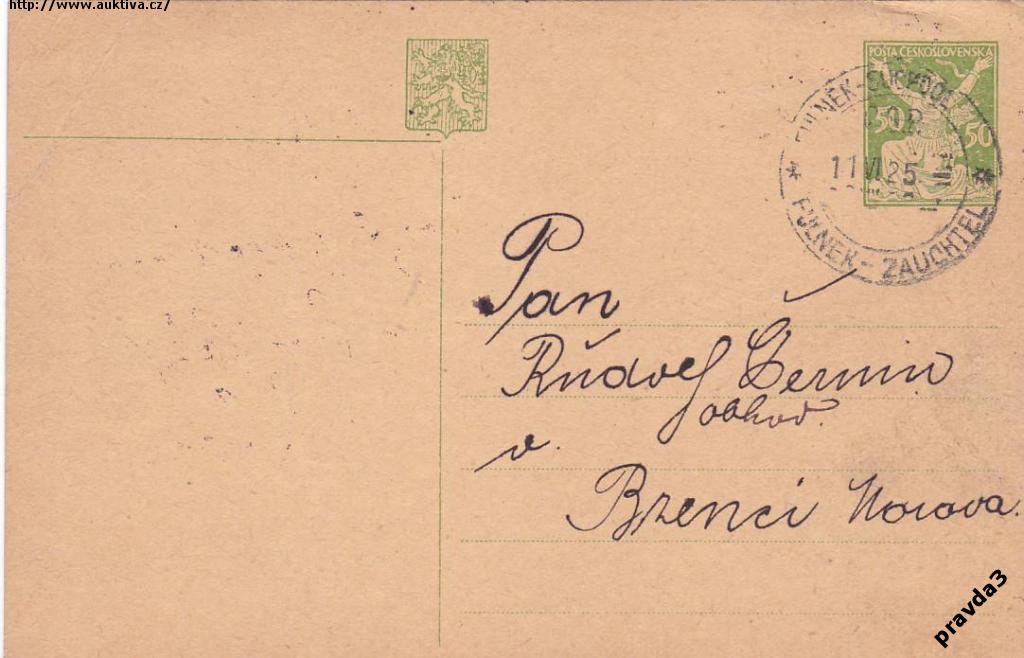 http://www.auktiva.cz/
POŠTA ČESKOSLOVENSKA
50 50
FULNEK-SUCHDOL
11 VI 25
FULNEK-ZAUCHTEL
Pan
Rudolf
obchod.
v.
Brenci Morava.
pravda3